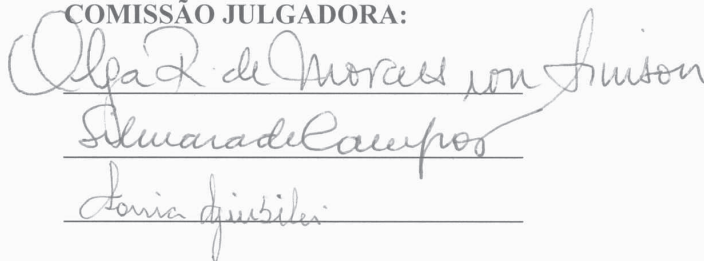 COMISSÃO JULGADORA:
Olga R. de Moraes von Simson
Silmara de Campos
Sonia Giubilei